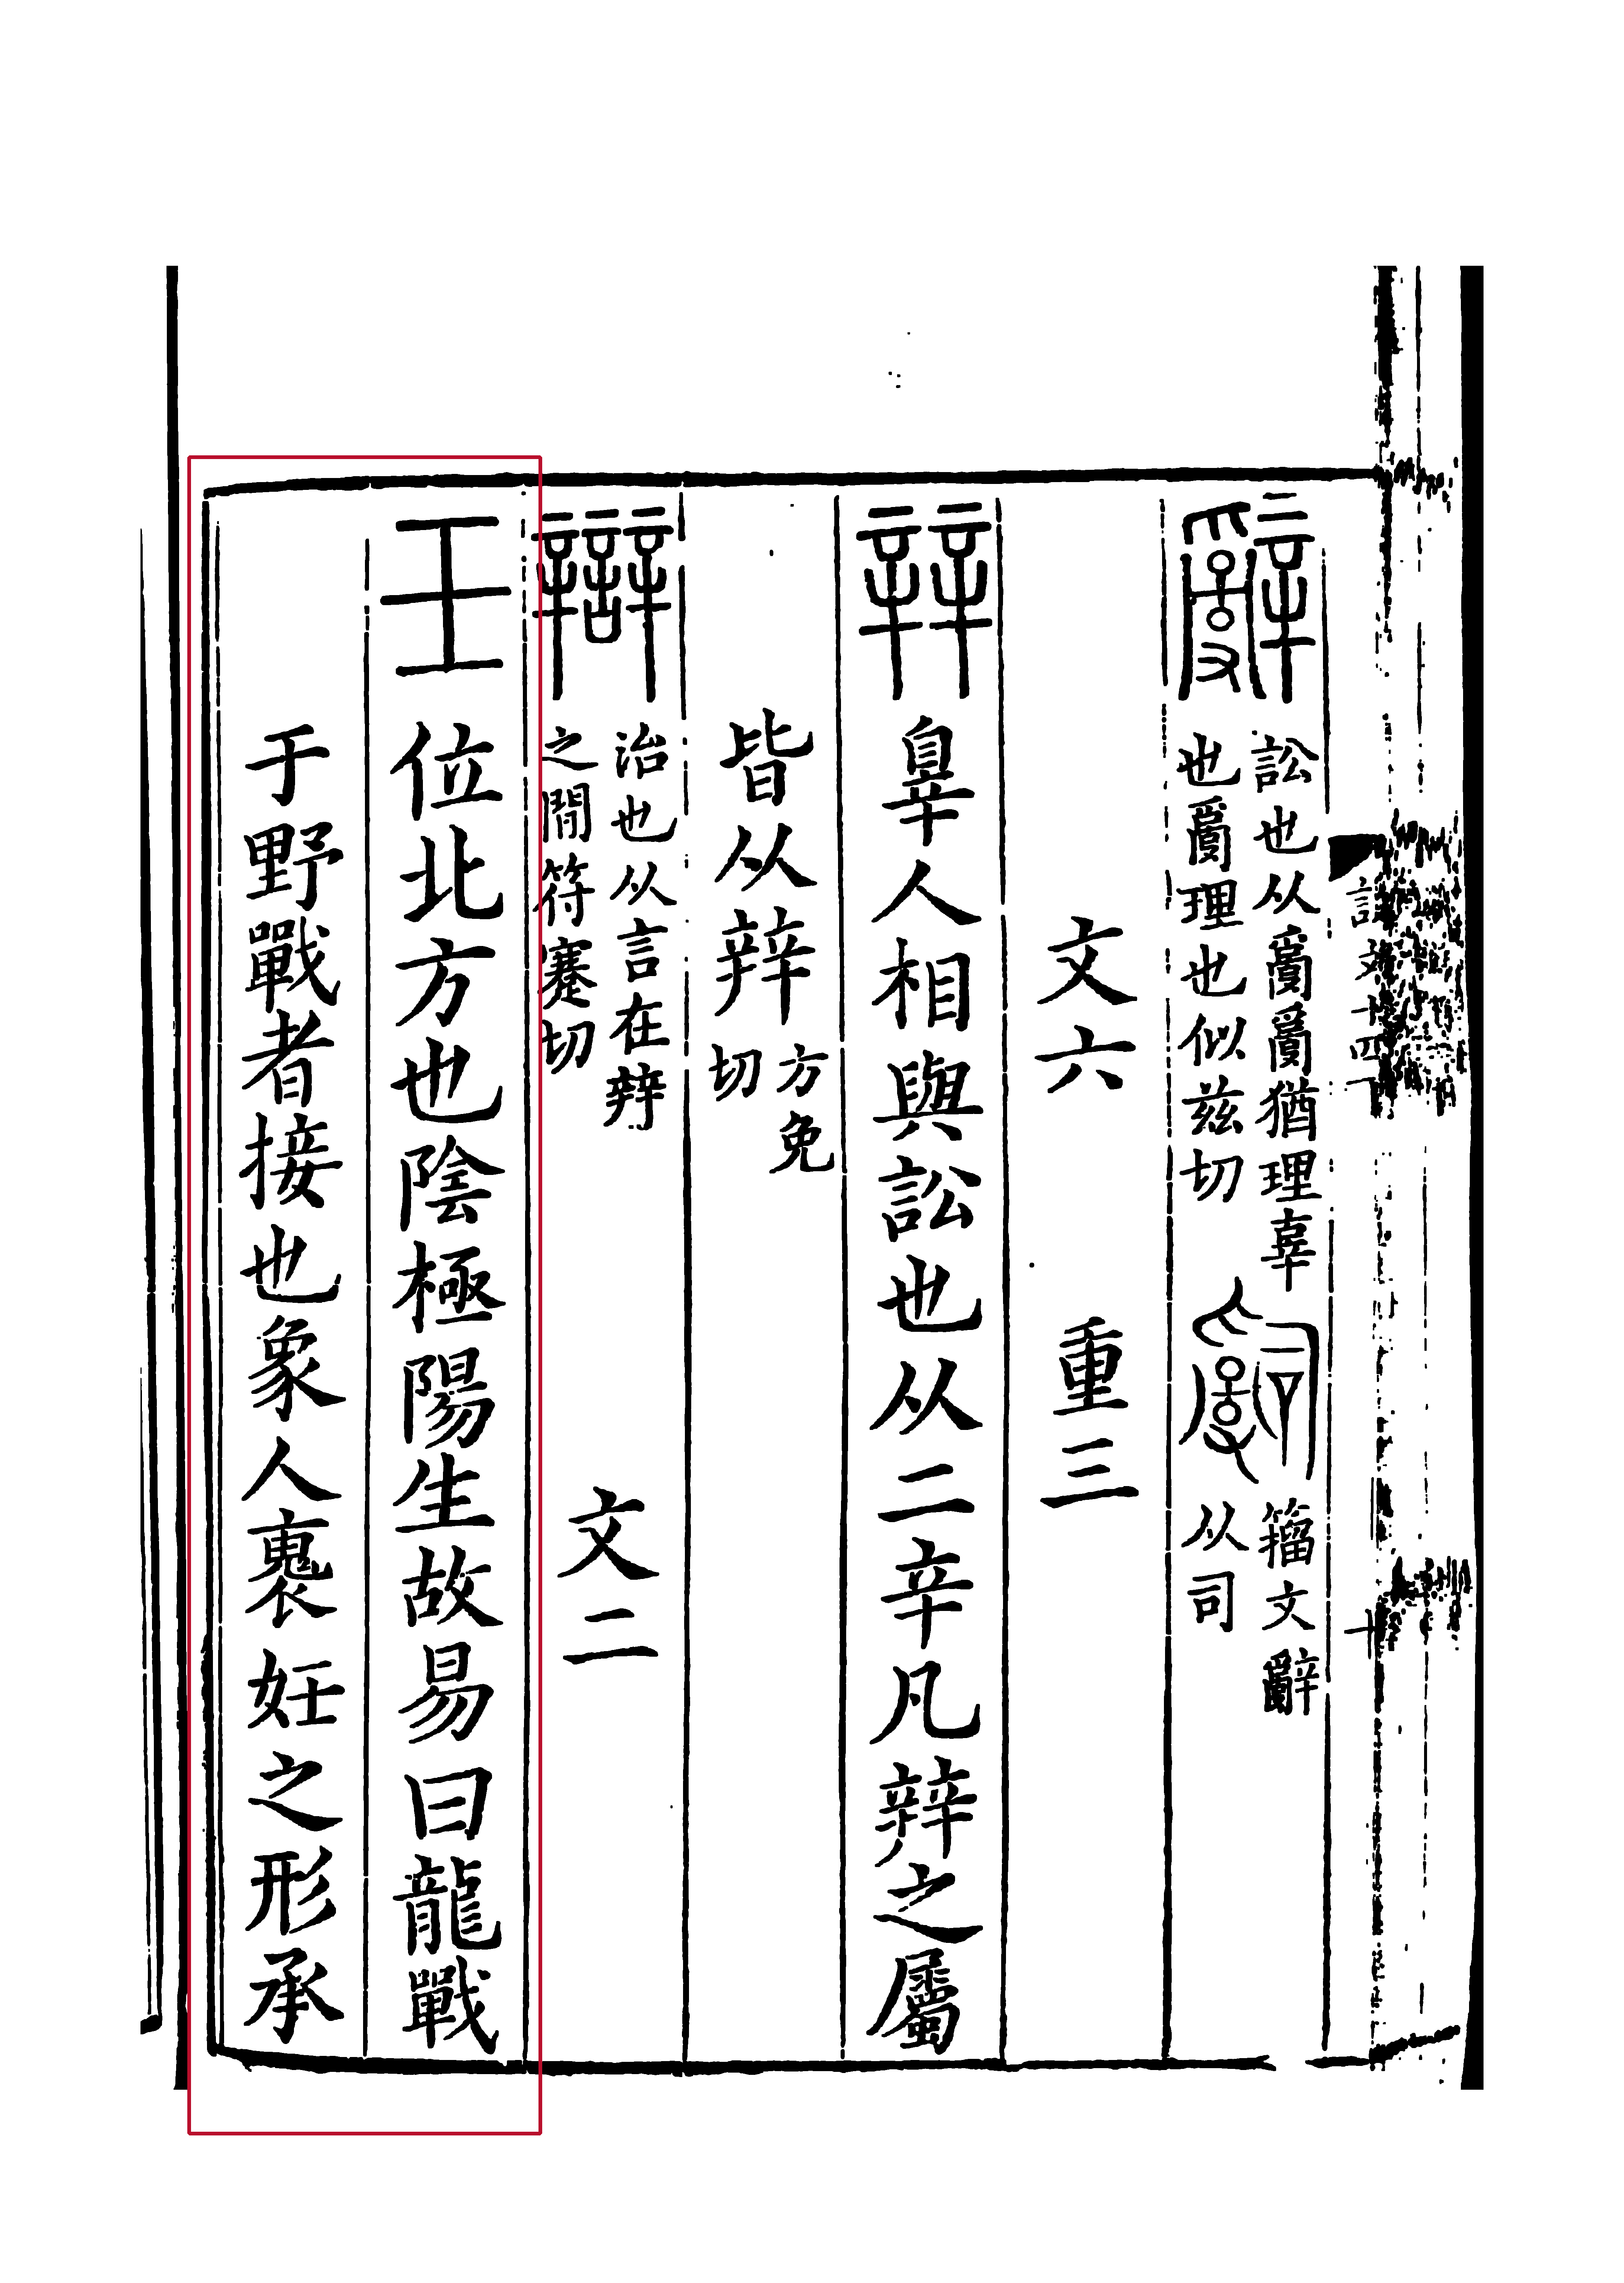 辭訟也从𤔔𤔔猶理辜也𤔔理也似兹切𤔲籀文辭从司
文六 重三
辡辠人相與訟也从二辛凡辡之屬
皆从辡方免切
辯治也从言在辡之間符蹇切 文二
壬位北方也陰極陽生故易曰龍戰
于野戰者接也象人褢妊之形承